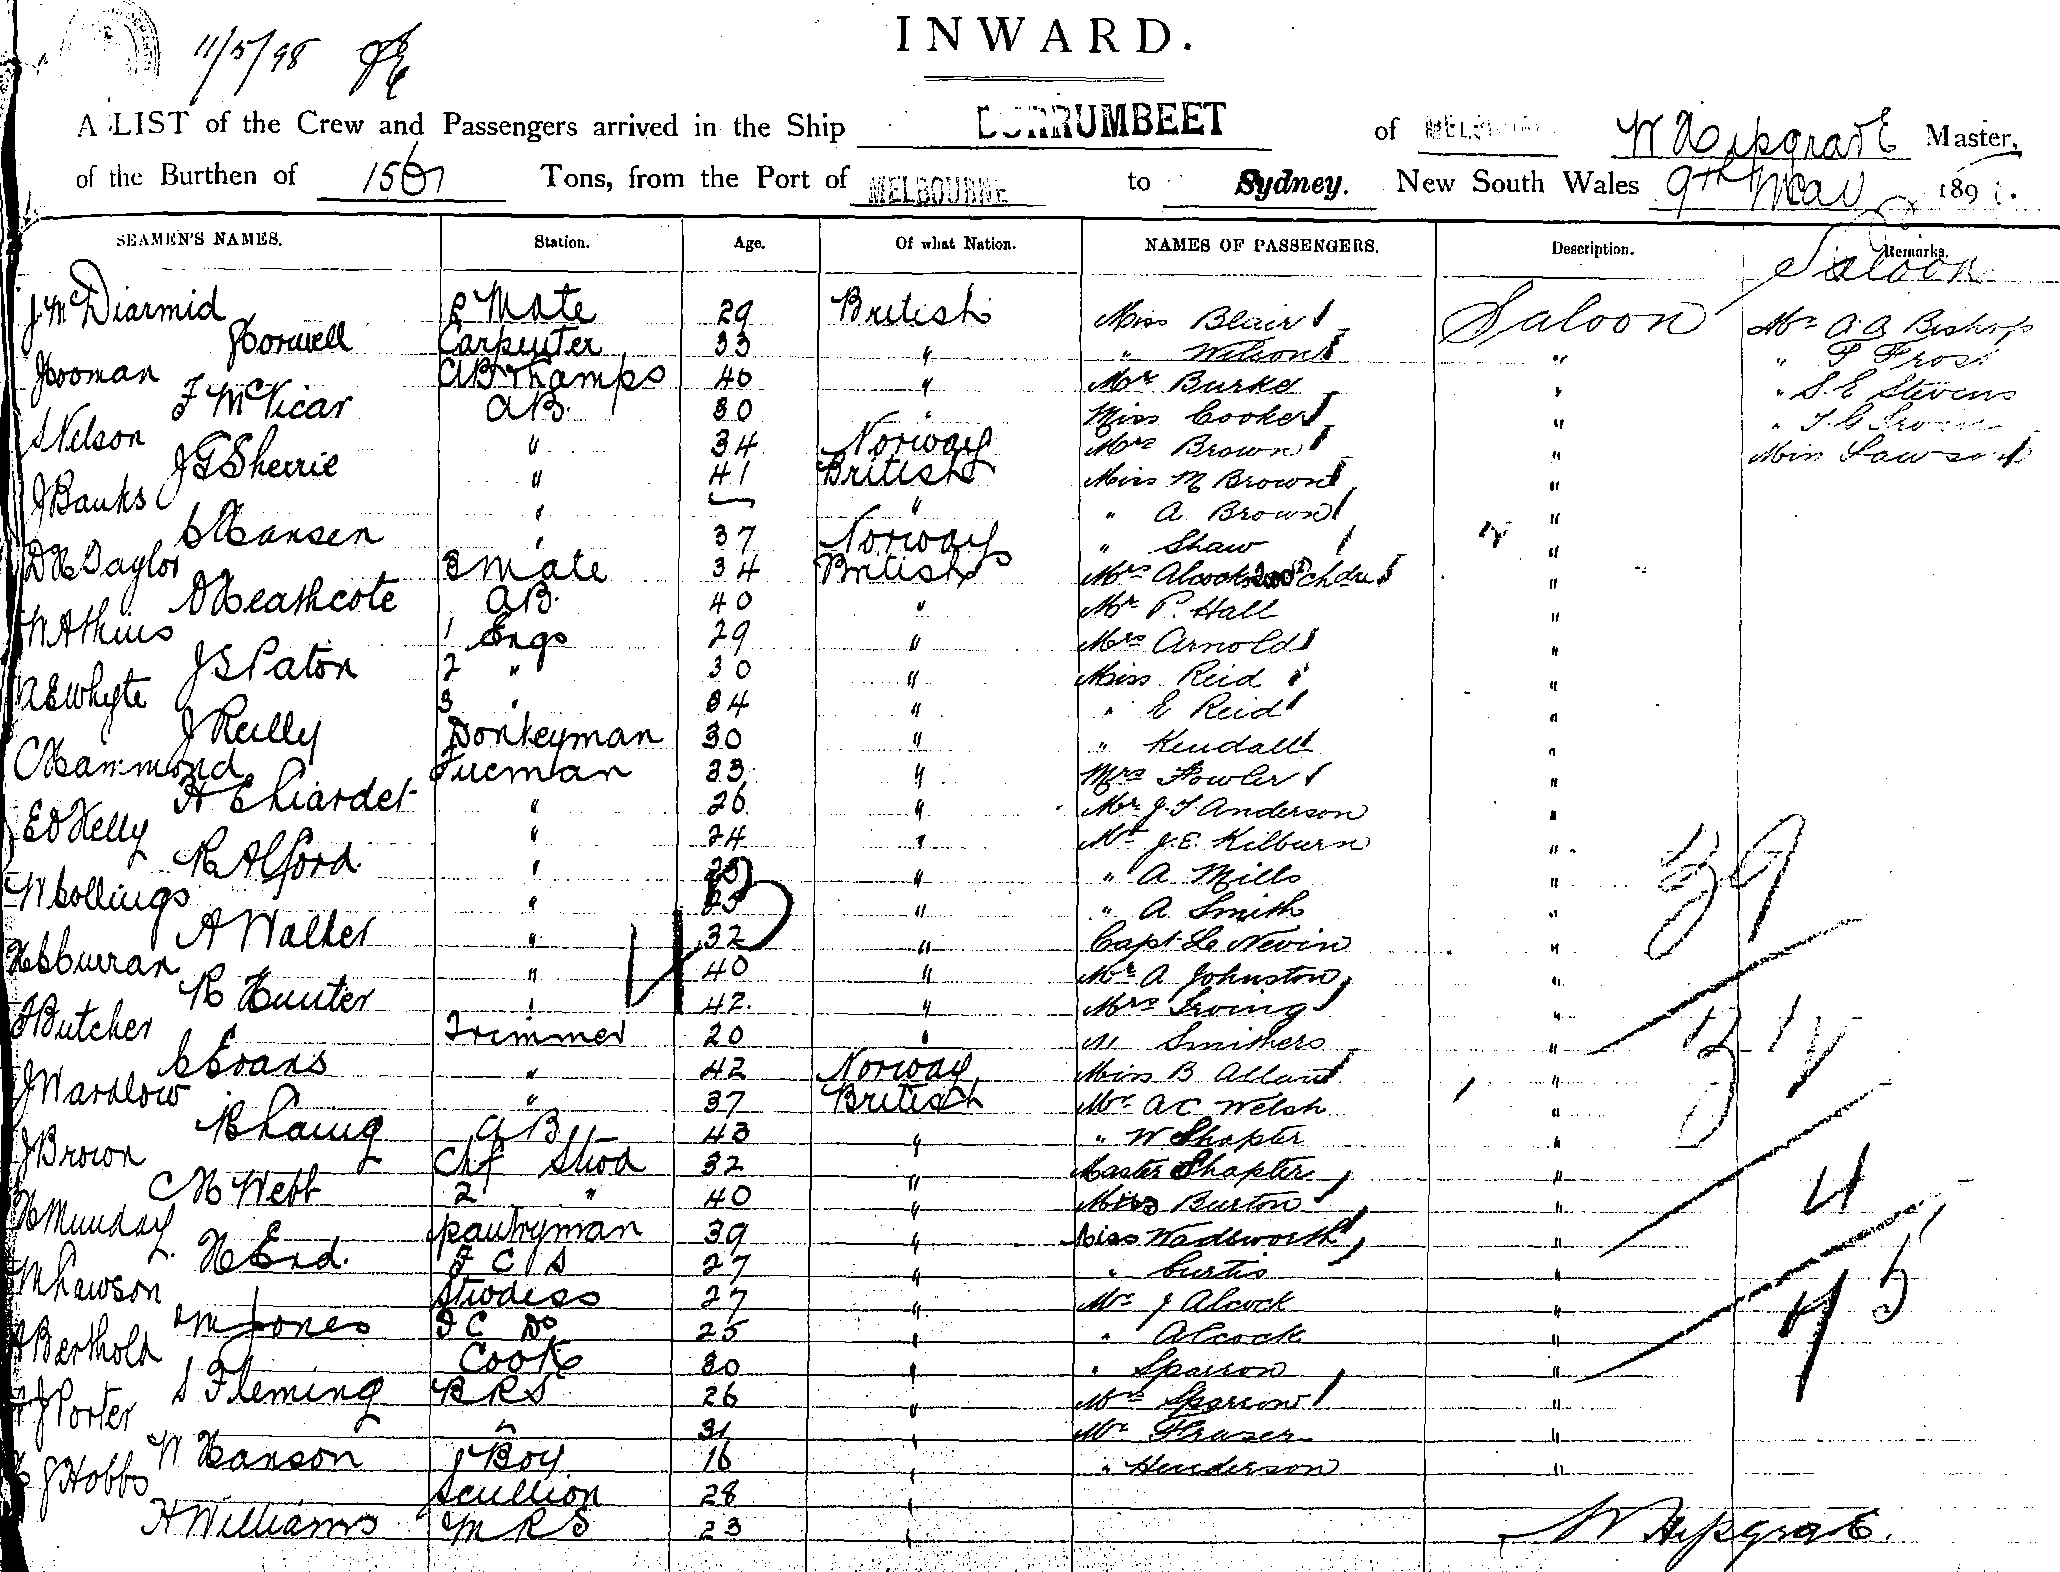 11/5/98
INWARD.
A LIST of the Crew and Passengers arrived in the Ship BURRUMBEET of MELBOURNE W Hipgrave Master,
of the Burthen of Tons, from the Port of MELBOURNE to Sydney. New South Wales 9th May 189
SEAMEN'S NAMES. Station. Age. Of what Nation. NAMES OF PASSENGERS. Description. Remarks.
Saloon
J McDiarmid 2 Mate 29 British Miss Blair Saloon Mr A. A Bishop
J Horwell Carpenter 33 " " Wilson " " Frost
J Cooman AB & Lamps 40 " Mr Burke " " S E Stevens
F McVicar AB. 30 " Miss Cooker " "
S Nelson " 34 Norway Mrs Brown " Miss Lawson
J G Sherrie " 41 British Miss M Brown "
J Banks " " " A Brown "
C Hansen " 37 Norway " Shaw "
D H Taylor 3 Mate 34 British Mrs Alcock chdn "
D Heathcote AB. 40 " Mr P. Hall "
W Atkins 1 Engs 29 " Mrs Arnold "
J S Paton 2 " 30 " Miss Reid "
A E Whyte 3 " 34 " " E Reid "
J Reilly Donkeyman 30 " " Kendall "
C Hammond Fireman 33 " Mrs Fowler "
H E Liardet " 26 " Mr J. T. Anderson "
E D Kelly " 24 " Mr J. E. Kilburn "
R Alford " " " A Mills "
W Collings " " " A. Smith "
A Walker " 32 " Capt Le Nevin "
H C Curran " 40 " Mr A Johnston "
R Hunter " 42 " Mrs Irving "
A Butcher Trimmer 20 " " Smithers "
C Evans " 42 Norway Miss B Allan "
J Wardlow " 37 British Mr A C Welsh "
R Laing AB 43 " " W Shapter "
J Brown Chf Stwd 32 " Master Shapter "
C H Webb 2 " 40 " Miss Burton "
H Munday pantryman 39 " Miss Wadsworth "
H End. F C S 27 " " Curtis "
M Lawson Stwdess 27 " Mr J Alcock "
M Jones F C Do 25 " " Alcock "
A Berthold Cook 30 " " Sparrow "
S Fleming B R S 26 " Mrs Sparrow "
J Porter " 31 " Mr Fraser "
W Hanson J Boy 16 " " Henderson "
J Hobbs Scullion 28 "
H Williams M R S 23 " W Hipgrave.
39
4
45
43